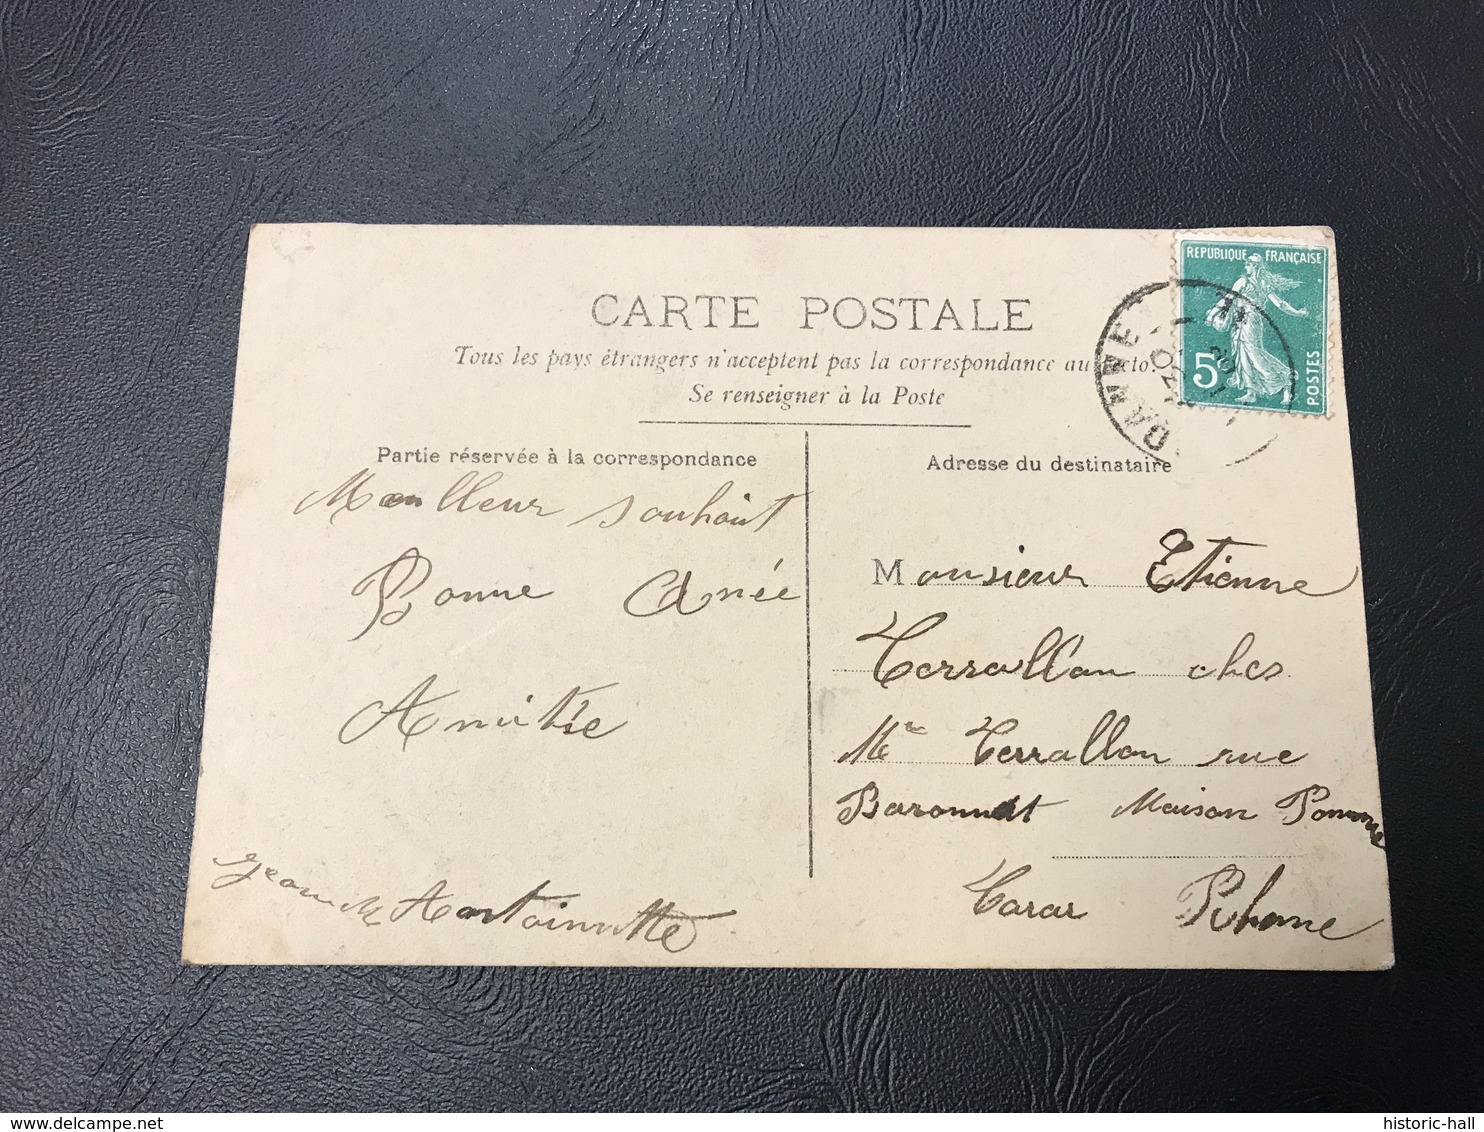 REPUBLIQUE FRANÇAISE
5c
POSTES
CARTE POSTALE
Tous les pays étrangers n'acceptent pas la correspondance au recto.
Se renseigner à la Poste
Partie réservée à la correspondance
Meilleur souhait
Bonne Anée
Amitie
Antoinette
Adresse du destinataire
Monsieur Etienne
Terrallon ches
Me Terrallon rue
Baronnat Maison Pomme
Tarar Rhone
historic-hall